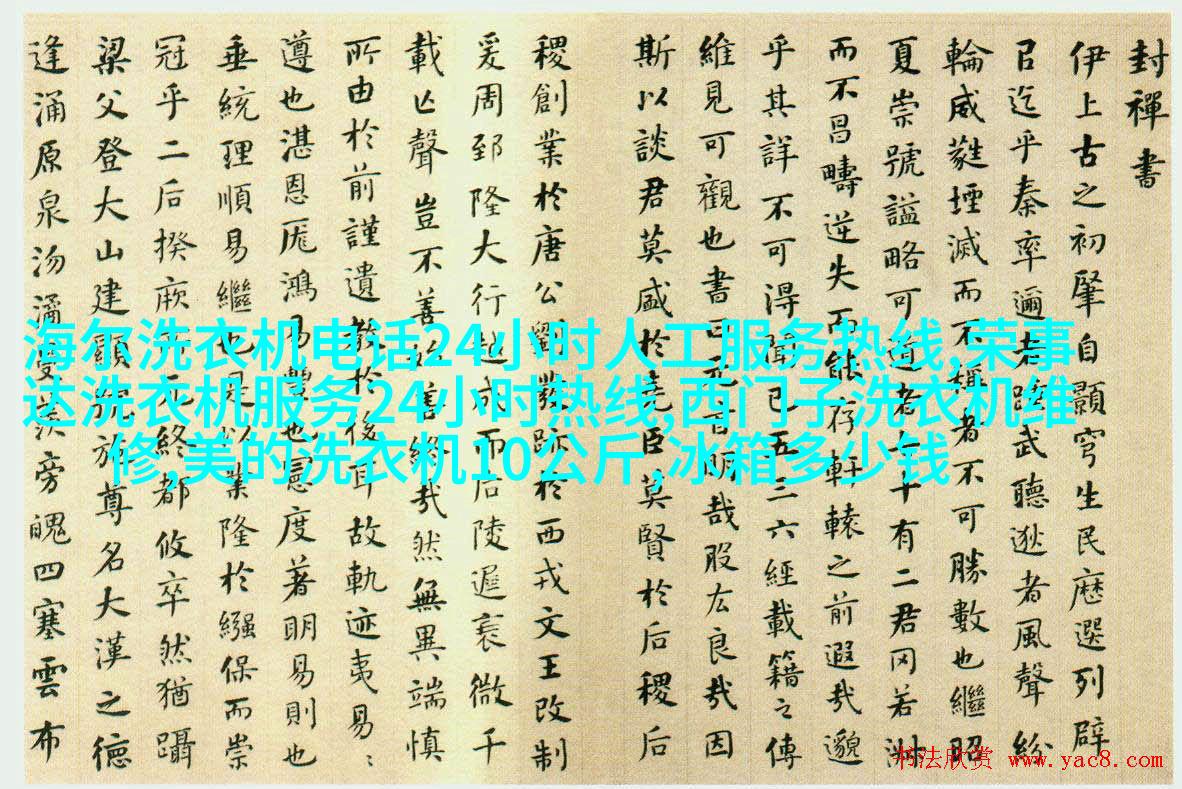 封禪書
伊上古之初肇自顥穹生民歷選列辟
㠯迄乎秦率邇者踵武聽逖者風聲紛
輪威蕤堙滅而不稱者不可勝數也繼昭
夏崇號謚略可道者七十有二君罔若淑
而不昌疇逆失而能存軒轅之前遐哉邈
乎其詳不可得聞已五三六經載籍之傳
維見可觀也書曰元首明哉股厷良哉因
斯以談君莫盛於堯臣莫賢於后稷后
稷創業於唐公劉發跡於西戎文王改制
爰周郅隆大行越成而后陵遲衰微千
載亡聲豈不善始善終哉然無異端慎
所由於前謹遺教於後耳故軌迹夷易〻
遵也湛恩厖鴻易豐也憲度著明易則也
垂統理順易繼也是以業隆於繈保而崇
冠乎二后揆厥所元終都攸卒然猶躡
梁父登大山建顯號施尊名大漢之德
逢涌原泉沕潏曼羨旁魄四塞雲布
海尔洗衣机电话24小时人工服务热线,荣事
达洗衣机服务24小时热线,西门子洗衣机维
修,美的洗衣机10公斤,冰箱多少钱
书法欣赏 www.yac8.com